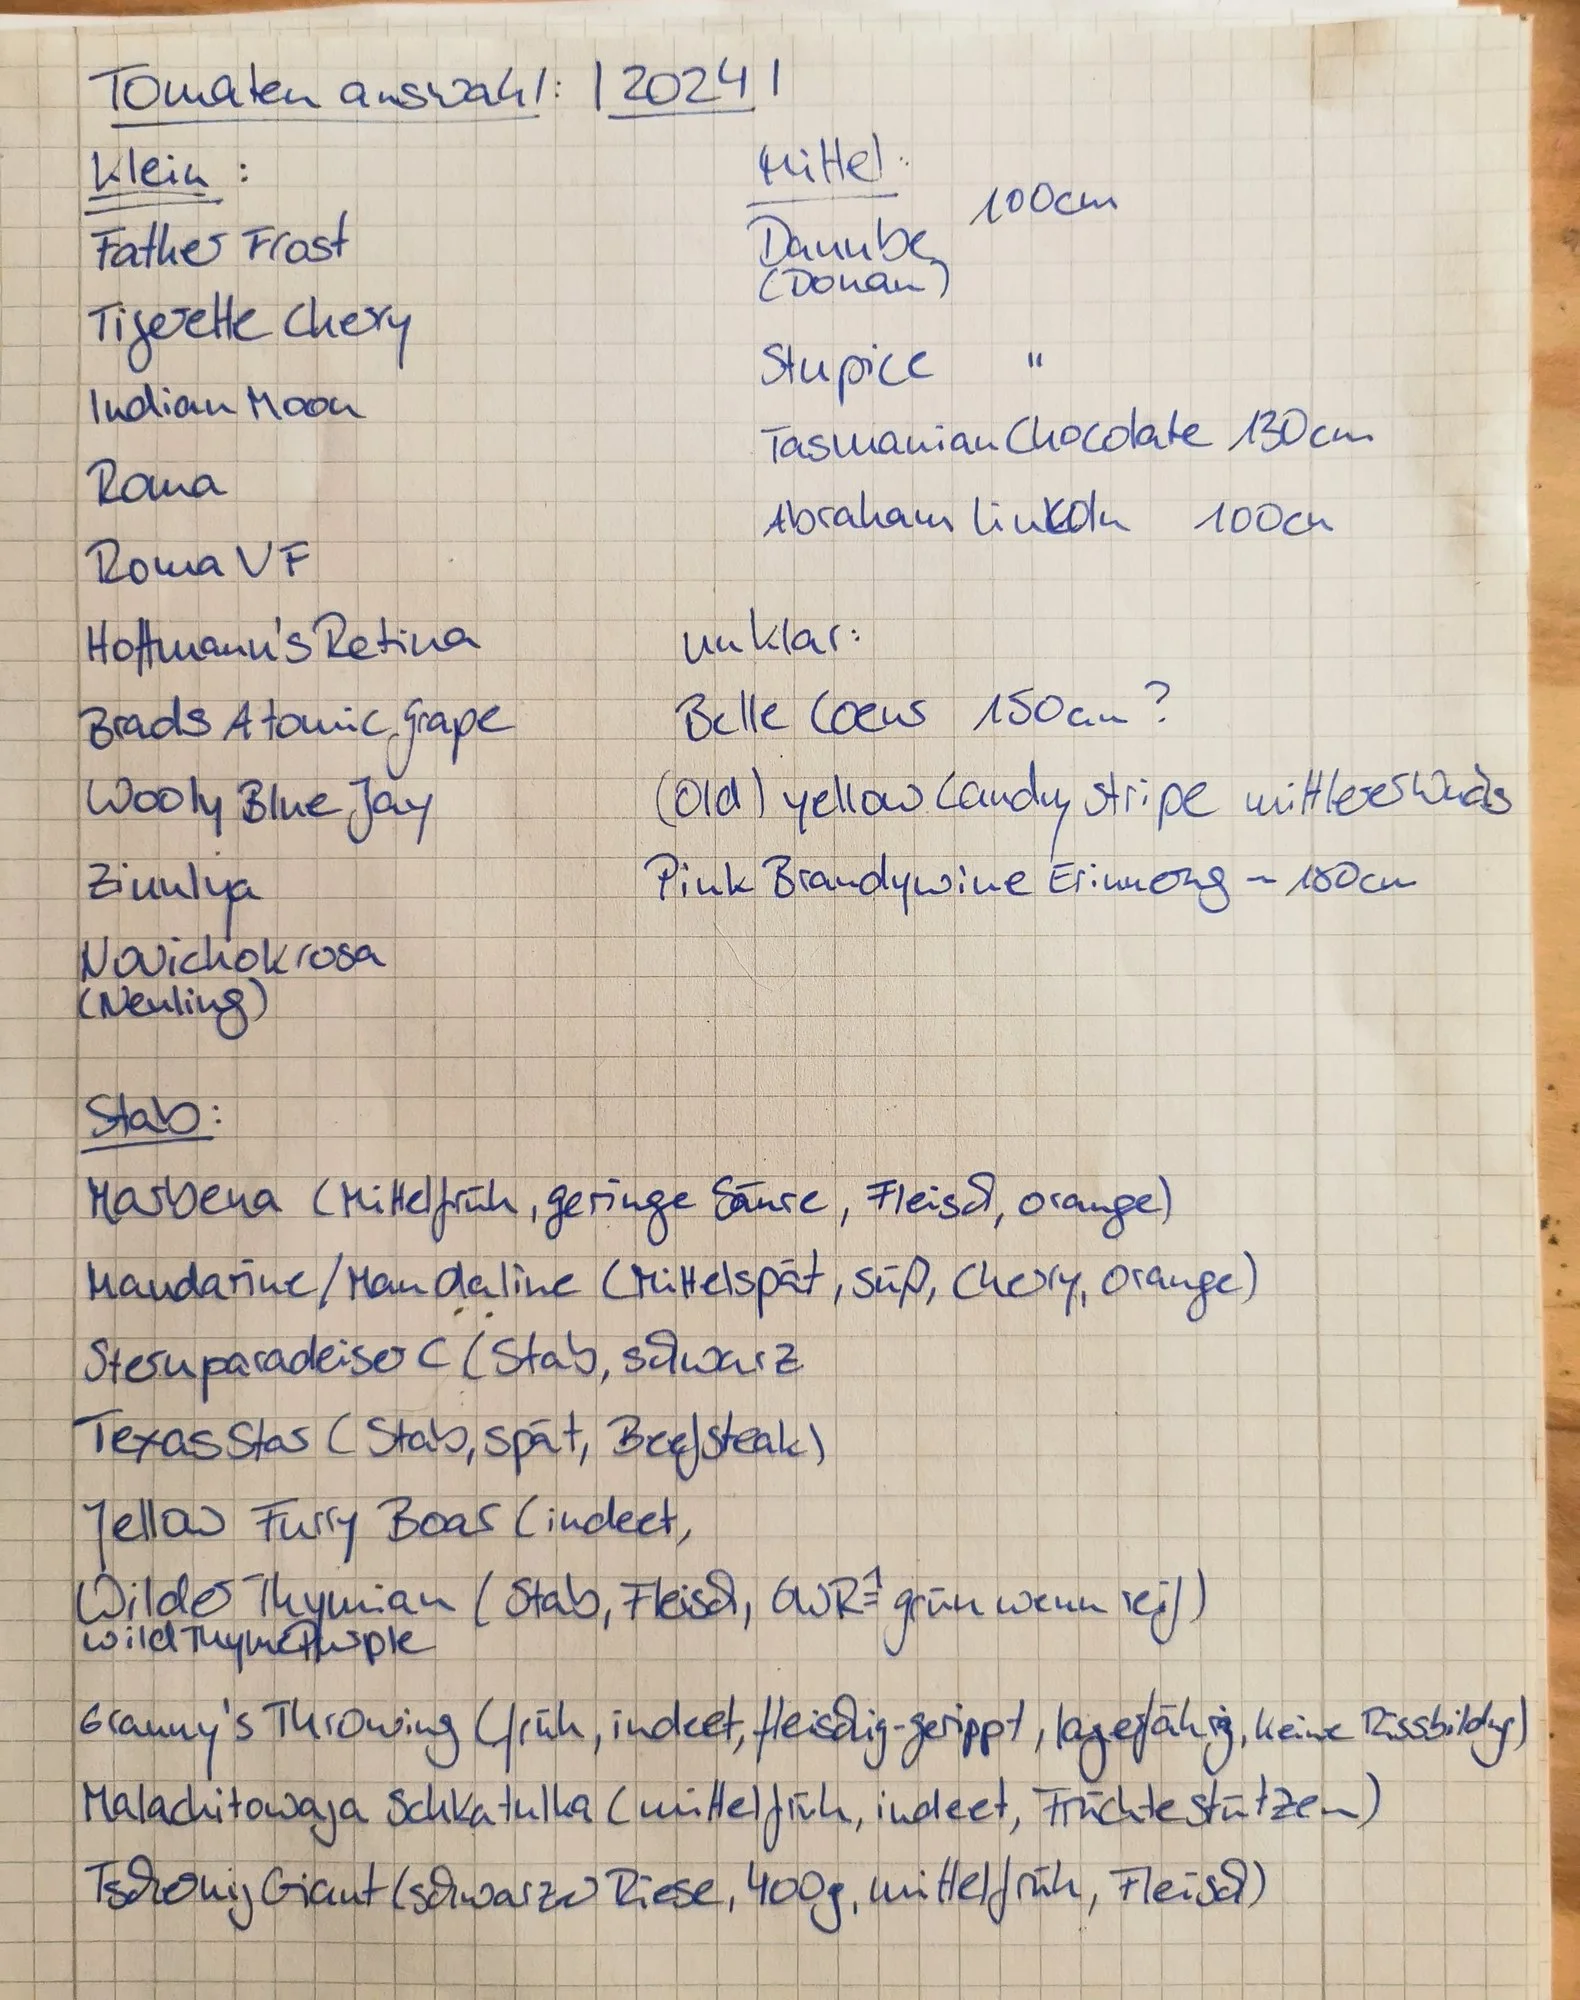 Tomaten auswahl: | 2024 |
Klein :
Father Frost
Tigerette Chery
Indian Moon
Roma
Roma VF
Hoffmann's Retina
Brads Atomic Grape
Wooly Blue Jay
Zinulya
Novichok rosa
(Neuling)
Mittel:
Danube 100cm
(Donau)
Stupice "
Tasmanian Chocolate 130cm
Abraham Linkoln 100cm
unklar:
Belle Coeur 150cm ?
(Old) yellow Candy stripe mittlerer Wuchs
Pink Brandywine Erinnerung ~ 180cm
Stab:
Marbena (Mittelfrüh, geringe Säure, Fleisch, orange)
Mandarine/Mandaline (Mittelspät, süß, Chery, orange)
Sternparadeiser C (Stab, schwarz
Texas Star (Stab, spät, Beefsteak)
Yellow Furry Boar (indeet,
Wilder Thymian (Stab, Fleisch, GWR ≙ grün wenn reif)
Wild Thyme Purple
Granny's Throwing (früh, indeet, fleischig-gerippt, lagerfähig, keine Rissbildung)
Malachitowaja Schkatulka (mittelfrüh, indeet, Früchte stützen)
Tschernij Giant (schwarzer Riese, 400g, mittelfrüh, Fleisch)